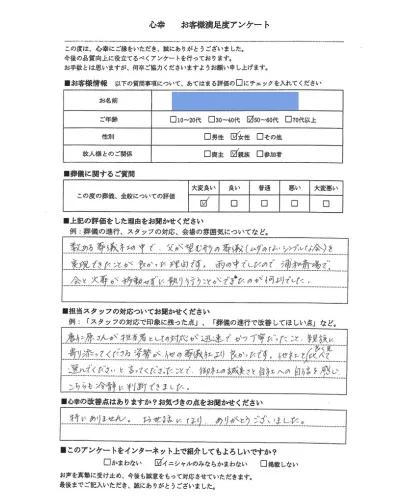 心幸　お客様満足度アンケート
この度は、心幸にご縁をいただき、誠にありがとうございました。
今後の品質向上に役立てるべくアンケートを行っております。
お手数とは思いますが、何卒ご協力くださいますようお願い申し上げます。
■お客様情報　以下の質問事項について、あてはまる評価の□にチェックを入れてください
お名前
ご年齢　□10～20代　□30～40代　☑50～60代　□70代以上
性別　□男性　☑女性　□その他
故人様とのご関係　□喪主　☑親族　□参加者
■葬儀に関するご質問
大変良い　良い　普通　悪い　大変悪い
この度の葬儀、全般についての評価　☑　□　□　□　□
■上記の評価をした理由をお聞かせください
例：葬儀の進行、スタッフの対応、会場の雰囲気についてなど。
数ある葬儀社の中で、父が望む形の葬儀(ムダのないシンプルな会)を
実現できたことが良かった理由です。雨の中でしたので浦和斎場で、
会と火葬が移動せずに執り行うことができたのが何よりでした。
■担当スタッフの対応ついてお聞かせください
例：「スタッフの対応で印象に残った点」、「葬儀の進行で改善してほしい点」など。
さんが担当者としての対応が迅速でかつ丁寧だったこと、親族に
寄り添ってくださる姿勢が他の葬儀社より良かったです。他社と比べて
選んでくださいと言ってくださったことで、御社の誠実さと自社への自信を感じ
こちらも冷静に判断できました。
■心幸の改善点はありますか？お気づきの点をお聞かせください
特にありません。お世話になり、ありがとうございました。
■このアンケートをインターネット上で紹介してもよろしいですか？
□かまわない　☑イニシャルのみならかまわない　□掲載しない
お声を真摯に受け止め、今後も誠意をもって対応させていただきます。
最後までご記入いただき、誠にありがとうございました。